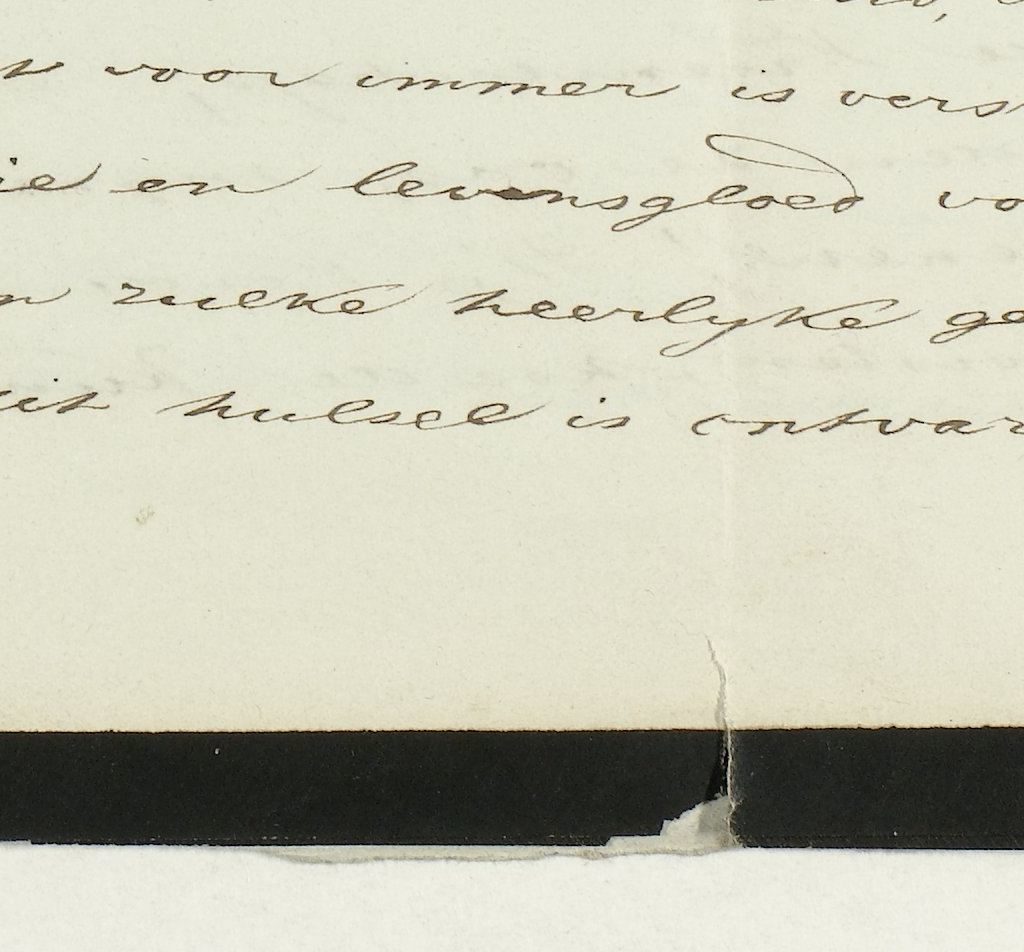 voor immer is vers
ie en levensgloed vo
n zulke heerlyke ge
hulsel is ontvar